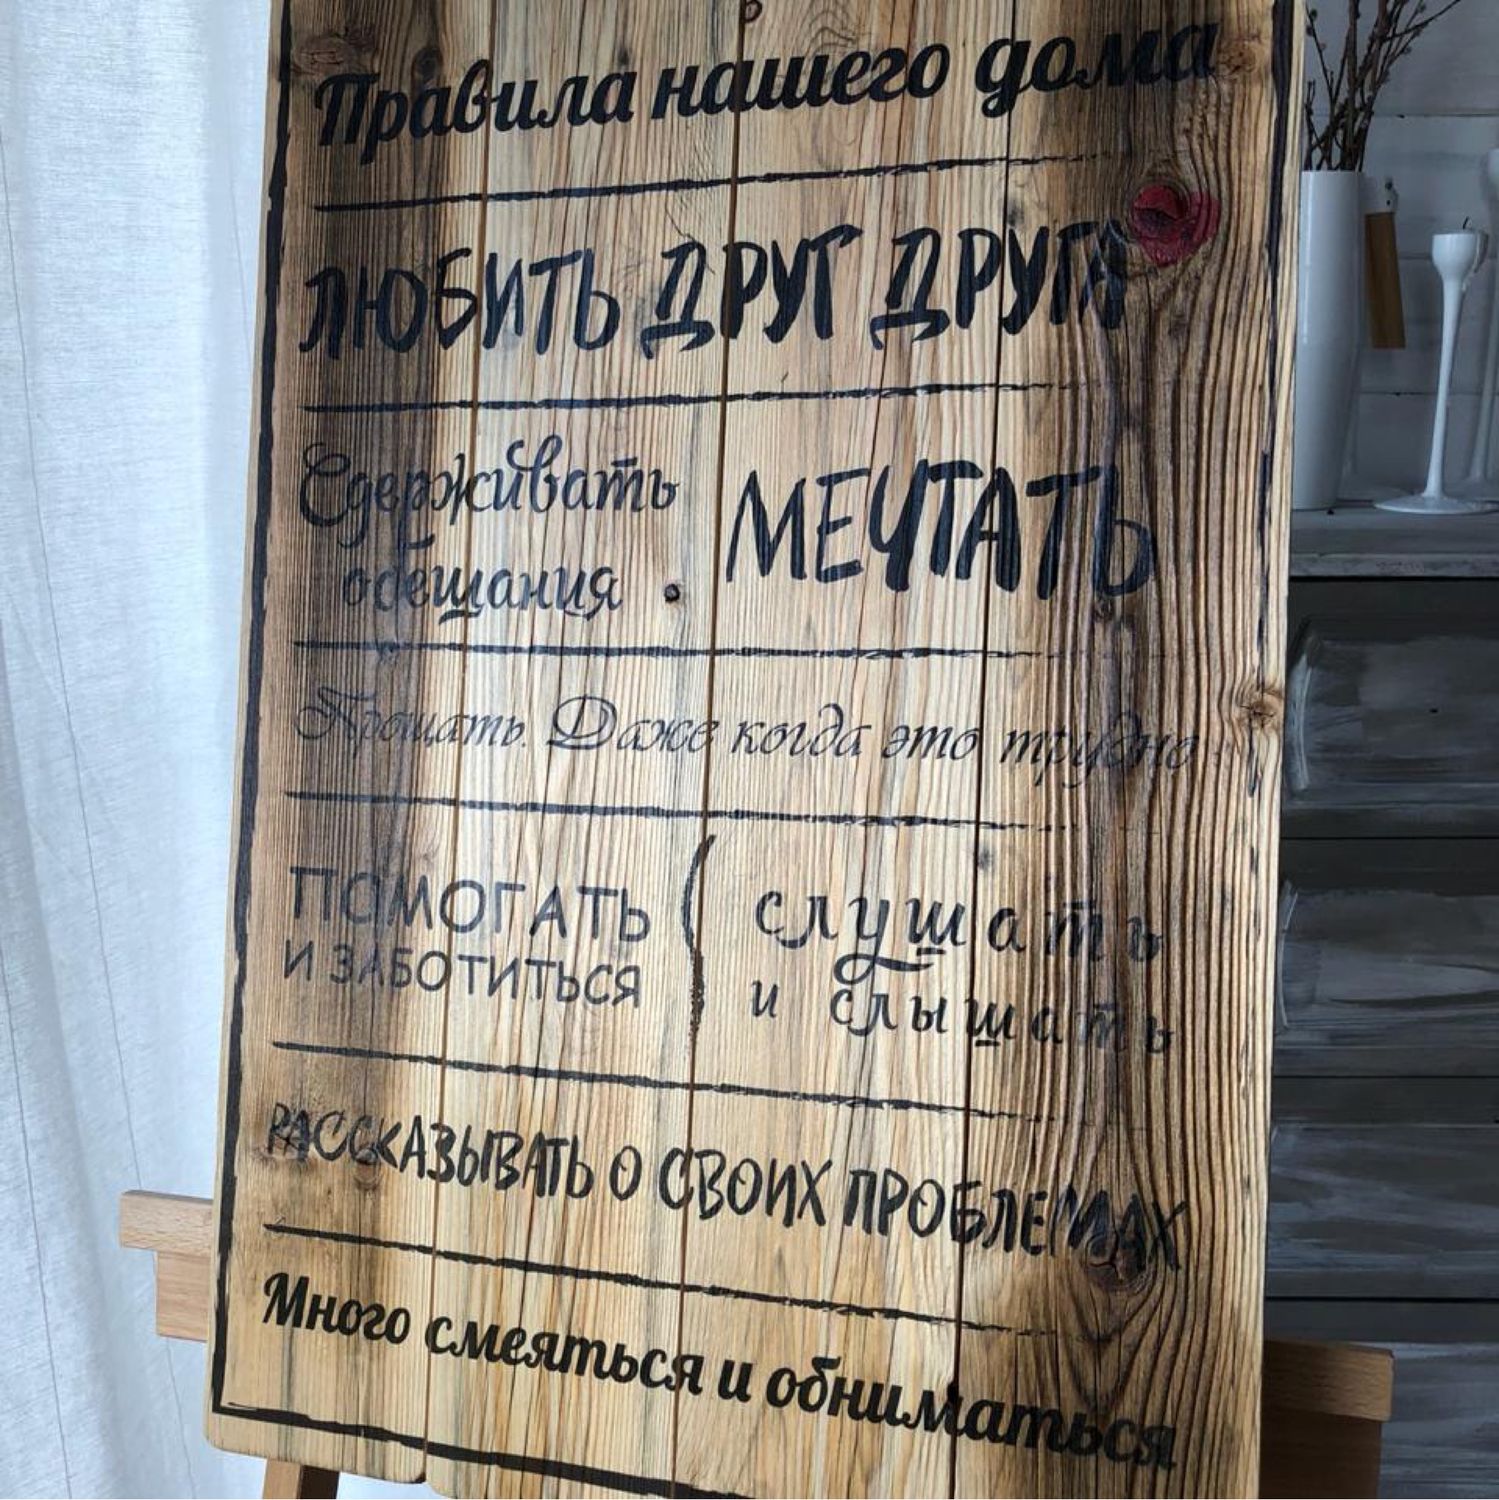 Правила нашего дома
ЛЮБИТЬ ДРУГ ДРУГА
Сдерживать
обещания
МЕЧТАТЬ
Прощать. Даже когда это трудно
ПОМОГАТЬ
И ЗАБОТИТЬСЯ
слушать
и слышать
РАССКАЗЫВАТЬ О СВОИХ ПРОБЛЕМАХ
Много смеяться и обниматься